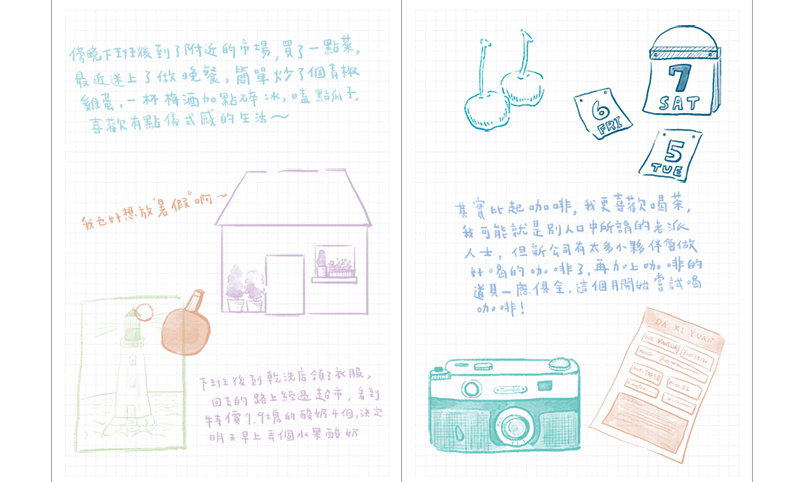 傍晚下班後到了附近的市場,買了一點菜,
最近迷上了做晚餐,簡單炒了個青椒
雞蛋,一杯梅酒加點碎冰,嗑點瓜子,
喜歡有點儀式感的生活~
我也好想放"暑假"啊~
下班後到乾洗店領了衣服,
回去的路上經過超市,看到
特價9.9塊的酸奶4個,決定
明天早上弄個水果酸奶
7
SAT
6
FRI
5
TUE
其實比起咖啡,我更喜歡喝茶,
我可能就是別人口中所謂的老派
人士,但新公司有太多小夥伴會做
好喝的咖啡了,再加上咖啡的
道具一應俱全.這個月開始嘗試喝
咖啡!
DA XI YUAN